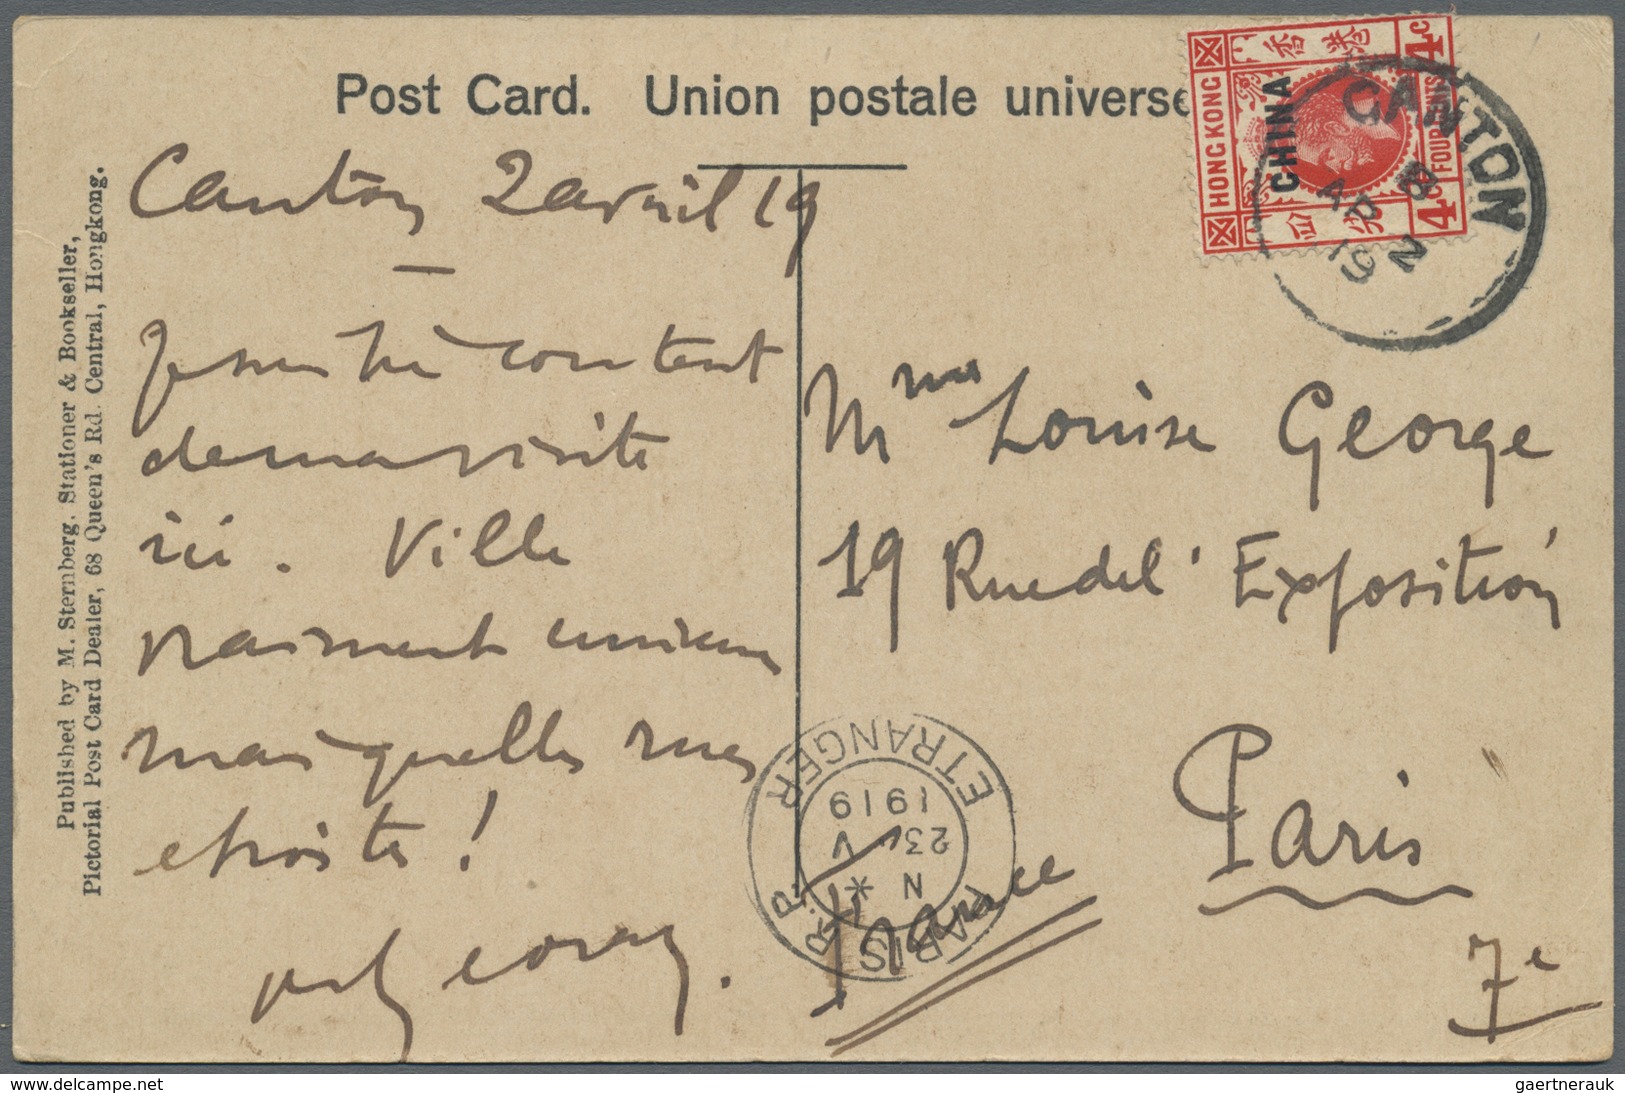 Post Card. Union postale universe
Published by M. Sternberg. Stationer & Bookseller,
Pictorial Post Card Dealer, 68 Queen's Rd. Central, Hongkong.
Canton 2 avril 19
Je suis très content
de ma visite
ici. Ville
vraiment curieuse
mais quelles rues
étroites !
香港
HONG KONG
CHINA
4c
FOUR CENTS
4c
CANTON
B
2
AP
19
Mme Louise George
19 Rue de l'Exposition
Paris
7e
France
PARIS R.P. ETRANGER
N *
23 V
1919
gaertnerauk